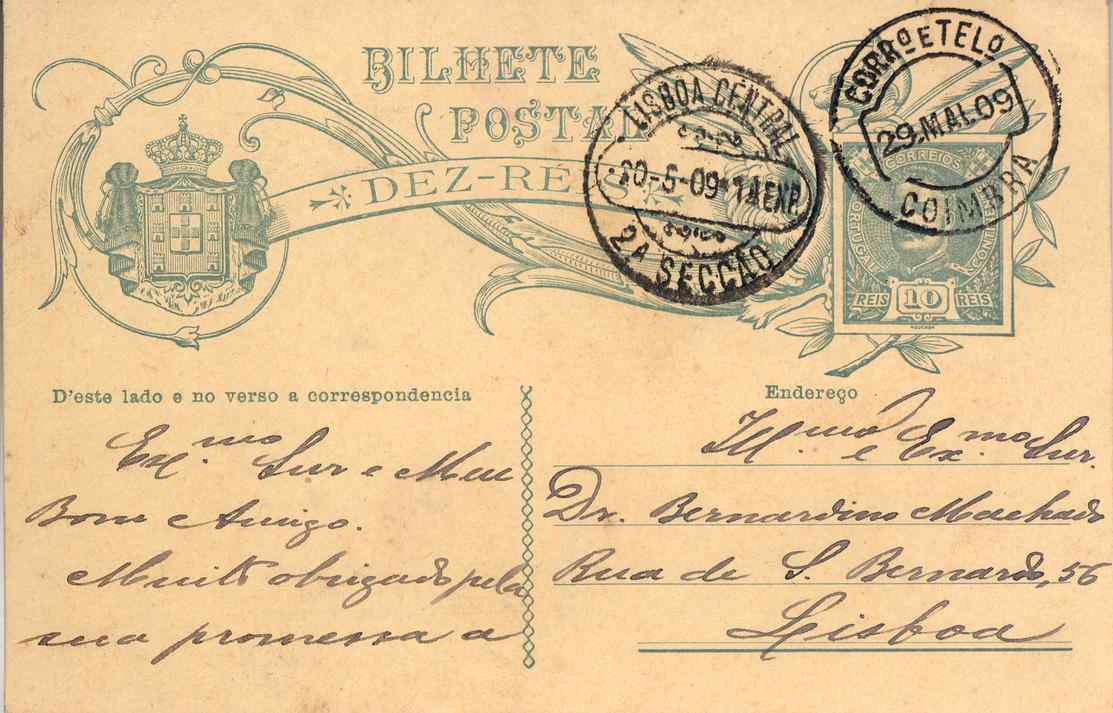 BILHETE
POSTAL
DEZ-RÉIS
LISBOA CENTRAL
2A SECCÃO
CORRº E TELº
29.MAI.09
COIMBRA
CORREIOS
PORTUGAL
REIS 10 REIS
D'este lado e no verso a correspondencia
Exmo. Snr e Meu
Bom Amigo.
Muito obrigado pela
sua promessa a
Endereço
Illmo. e Exmo. Snr.
Dr. Bernardino Machado
Rua de S. Bernardo, 56
Lisboa